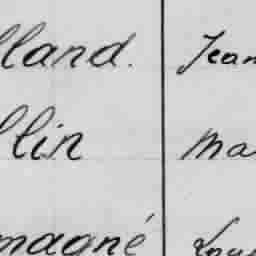 lland. Jean
llin Ma
magné Lou